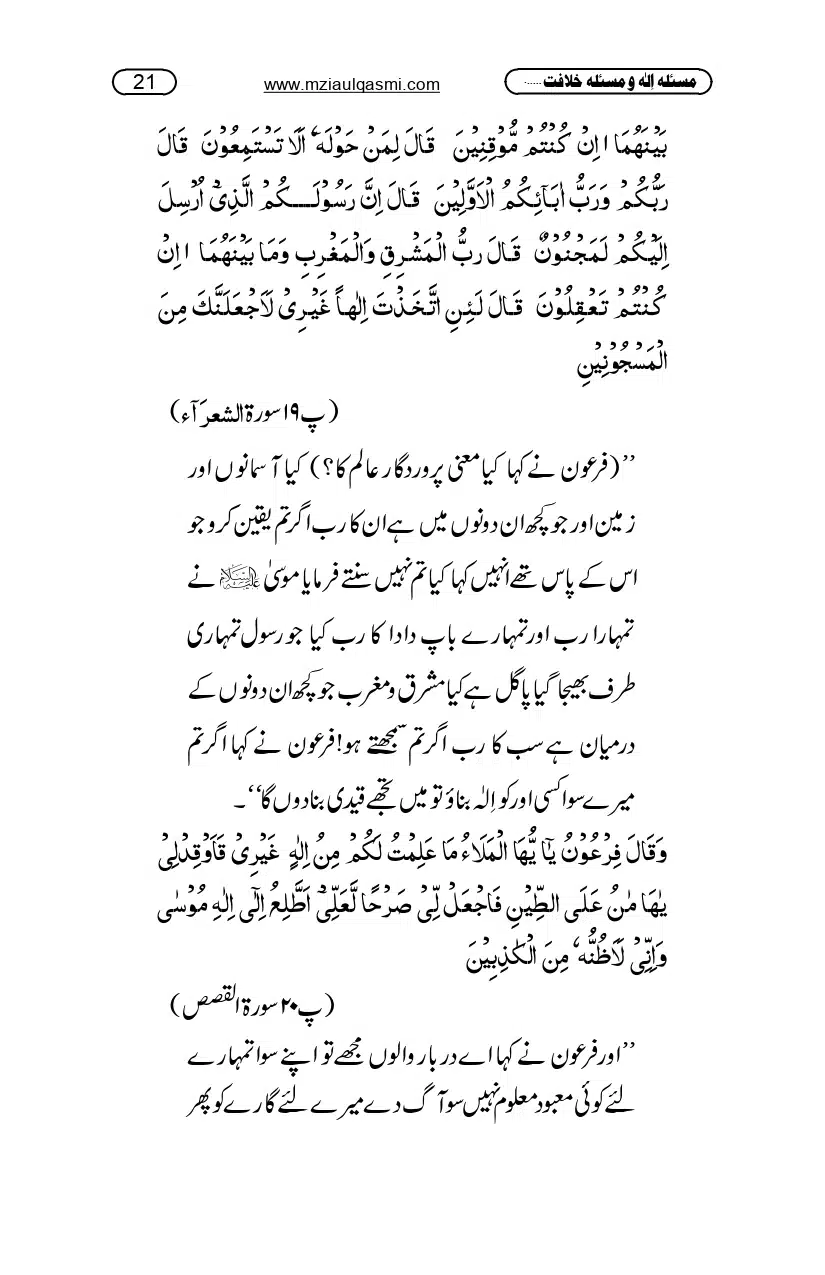 مسئلہ اِلٰہ و مسئلہ خلافت......
www.mziaulqasmi.com
21
بَيْنَهُمَا اِنْ كُنْتُمْ مُّوْقِنِيْنَ قَالَ لِمَنْ حَوْلَهٗ اَلَا تَسْتَمِعُوْنَ قَالَ
رَبُّكُمْ وَرَبُّ اٰبَآئِكُمُ الْاَوَّلِيْنَ قَالَ اِنَّ رَسُوْلَكُمُ الَّذِىْٓ اُرْسِلَ
اِلَيْكُمْ لَمَجْنُوْنٌ قَالَ رَبُّ الْمَشْرِقِ وَالْمَغْرِبِ وَمَا بَيْنَهُمَا اِنْ
كُنْتُمْ تَعْقِلُوْنَ قَالَ لَئِنِ اتَّخَذْتَ اِلٰهاً غَيْرِىْ لَاَجْعَلَنَّكَ مِنَ
الْمَسْجُوْنِيْنِ
(پ ۱۹ سورۃ الشعرآء)
’’(فرعون نے کہا کیا معنی پروردگار عالم کا؟) کیا آسمانوں اور
زمین اور جو کچھ ان دونوں میں ہے ان کا رب اگر تم یقین کرو جو
اس کے پاس تھے انہیں کہا کیا تم نہیں سنتے فرمایا موسیٰ علیہ السلام نے
تمہارا رب اور تمہارے باپ دادا کا رب کیا جو رسول تمہاری
طرف بھیجا گیا پاگل ہے کیا مشرق و مغرب جو کچھ ان دونوں کے
درمیان ہے سب کا رب اگر تم سمجھتے ہو! فرعون نے کہا اگر تم
میرے سوا کسی اور کو اِلٰہ بناؤ تو میں تجھے قیدی بنا دوں گا‘‘۔
وَقَالَ فِرْعُوْنُ يٰٓا يُّهَا الْمَلَاءُ مَا عَلِمْتُ لَكُمْ مِنُ اِلٰهٍ غَيْرِىْ فَاَوْقِدْلِىْ
يٰهَا مٰنُ عَلَى الطِّيْنِ فَاجْعَلْ لِّىْ صَرْحًا لَّعَلِّىْٓ اَطَّلِعُ اِلٰٓى اِلٰهِ مُوْسٰى
وَاِنِّىْ لَاَظُنُّهٗ مِنَ الْكٰذِبِيْنَ
(پ ۲۰ سورۃ القصص)
’’اور فرعون نے کہا اے دربار والوں مجھے تو اپنے سوا تمہارے
لئے کوئی معبود معلوم نہیں سو آگ دے میرے لئے گارے کو پھر